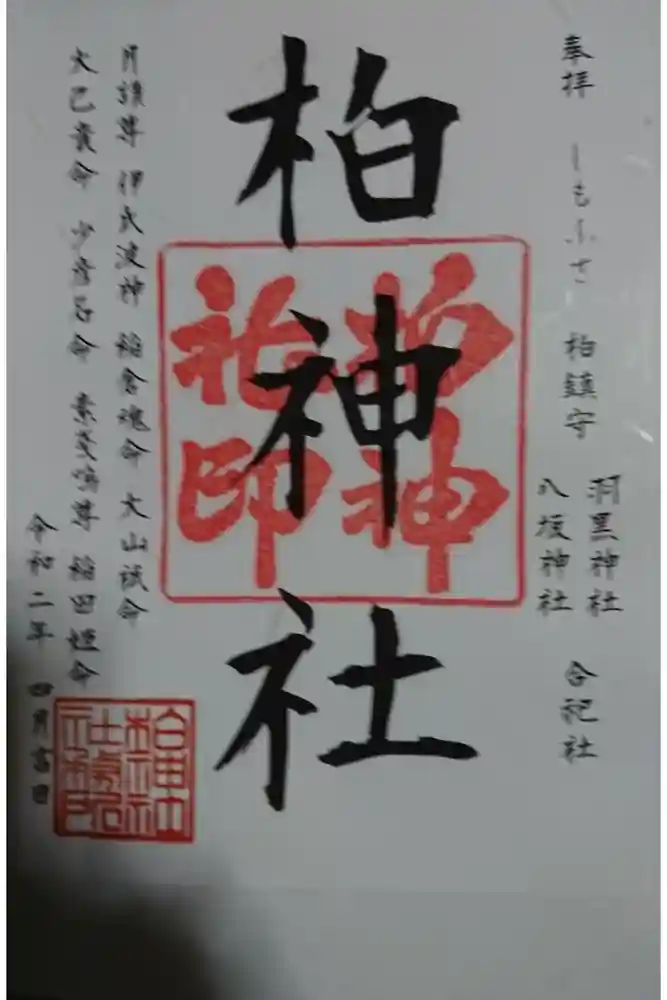 奉拝 しもふさ 柏鎮守
羽黒神社
八坂神社
合祀社
柏神社
柏神社印
月讀尊 伊氐波神 稲倉魂命 大山祇命
大己貴命 少彦名命 素戔嗚尊 稲田姫命
令和二年 四月吉日